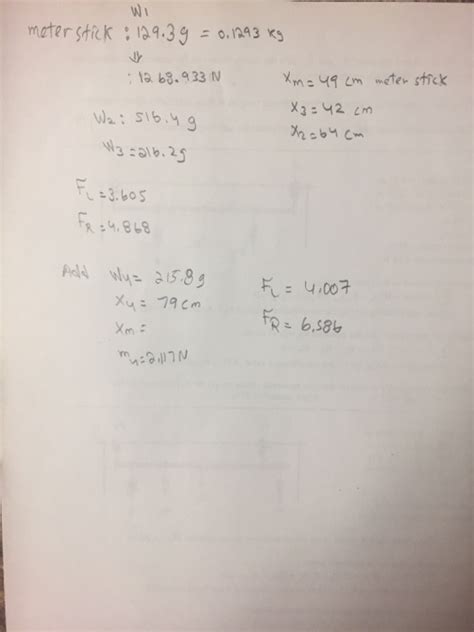 W1
meter stick : 129.3g = 0.1293 kg
⇓
: 1268.933 N
Xm = 49 cm meter stick
X3 = 42 cm
X2 = 64 cm
W2 : 516.4 g
W3 = 216.2g
FL = 3.605
FR = 4.868
Add W4 = 215.8g
X4 = 79 cm
Xm =
m4 = 2.117 N
FL = 4.007
FR = 6.586